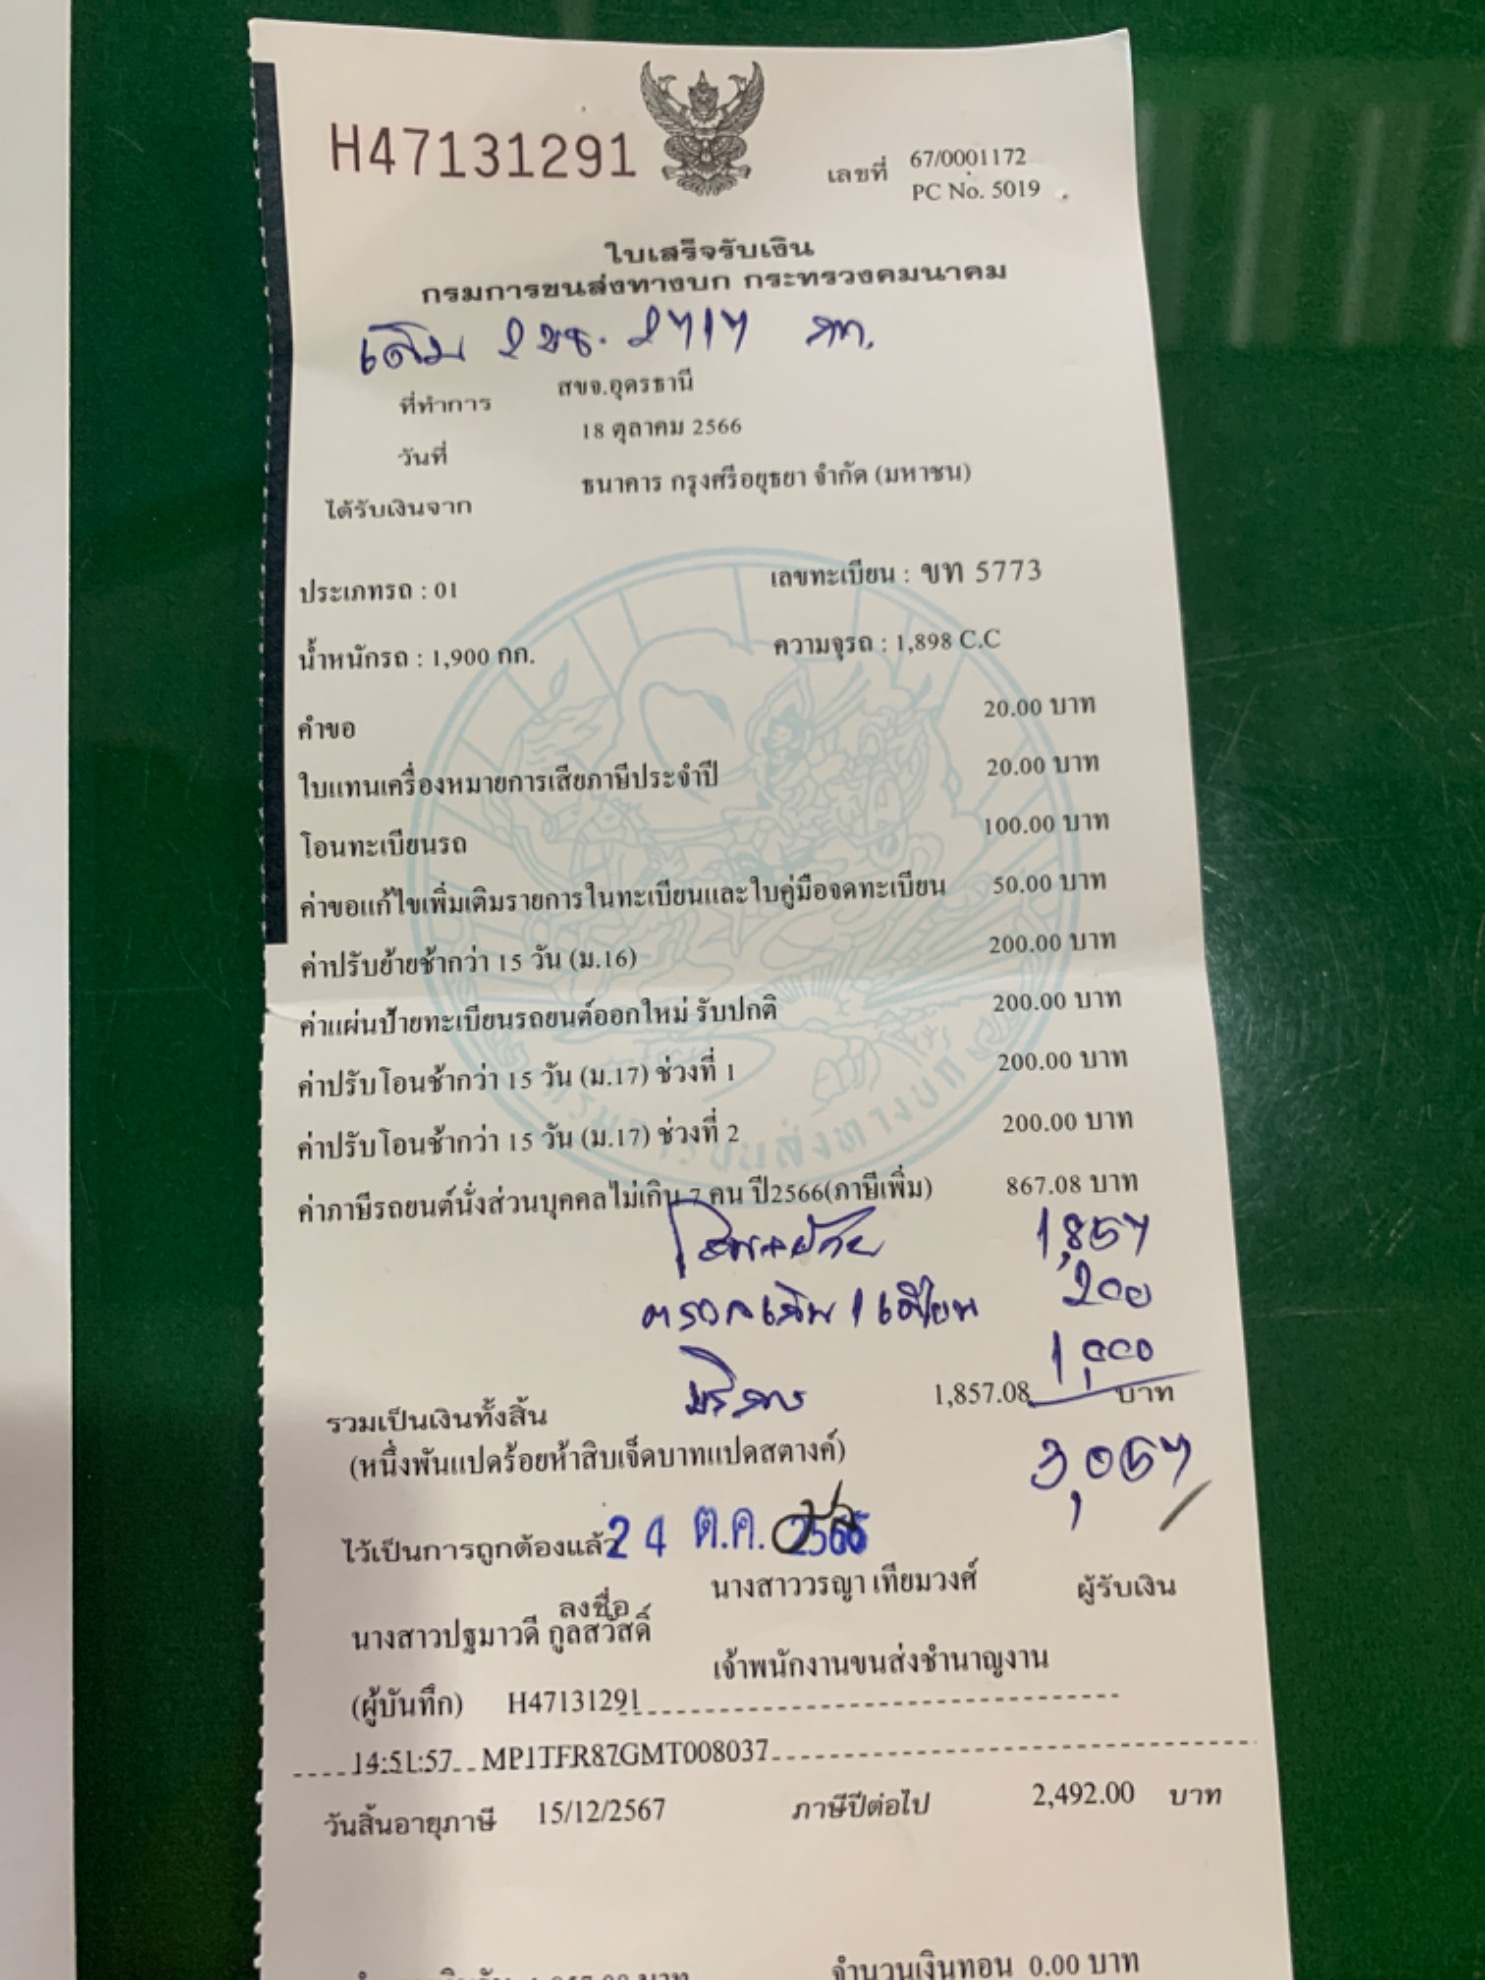 H47131291
เลขที่ 67/0001172
PC No. 5019
ใบเสร็จรับเงิน
กรมการขนส่งทางบก กระทรวงคมนาคม
เดิม 2ขธ. 2717 กท.
ที่ทำการ สขจ.อุดรธานี
วันที่ 18 ตุลาคม 2566
ได้รับเงินจาก ธนาคาร กรุงศรีอยุธยา จำกัด (มหาชน)
ประเภทรถ : 01 เลขทะเบียน : ขท 5773
น้ำหนักรถ : 1,900 กก. ความจุรถ : 1,898 C.C
คำขอ 20.00 บาท
ใบแทนเครื่องหมายการเสียภาษีประจำปี 20.00 บาท
โอนทะเบียนรถ 100.00 บาท
ค่าขอแก้ไขเพิ่มเติมรายการในทะเบียนและใบคู่มือจดทะเบียน 50.00 บาท
ค่าปรับย้ายช้ากว่า 15 วัน (ม.16) 200.00 บาท
ค่าแผ่นป้ายทะเบียนรถยนต์ออกใหม่ รับปกติ 200.00 บาท
ค่าปรับโอนช้ากว่า 15 วัน (ม.17) ช่วงที่ 1 200.00 บาท
ค่าปรับโอนช้ากว่า 15 วัน (ม.17) ช่วงที่ 2 200.00 บาท
ค่าภาษีรถยนต์นั่งส่วนบุคคลไม่เกิน 7 คน ปี2566(ภาษีเพิ่ม) 867.08 บาท
1,857
200
บริการ 1,000
รวมเป็นเงินทั้งสิ้น 1,857.08 บาท
(หนึ่งพันแปดร้อยห้าสิบเจ็ดบาทแปดสตางค์) 3,057
ไว้เป็นการถูกต้องแล้ว 24 ต.ค. 2566
ลงชื่อ นางสาววรญา เทียมวงศ์ ผู้รับเงิน
นางสาวปฐมาวดี กูลสวัสดิ์
เจ้าพนักงานขนส่งชำนาญงาน
(ผู้บันทึก) H47131291
14:51:57 MP1TFR87GMT008037
วันสิ้นอายุภาษี 15/12/2567 ภาษีปีต่อไป 2,492.00 บาท
จำนวนเงินทอน 0.00 บาท